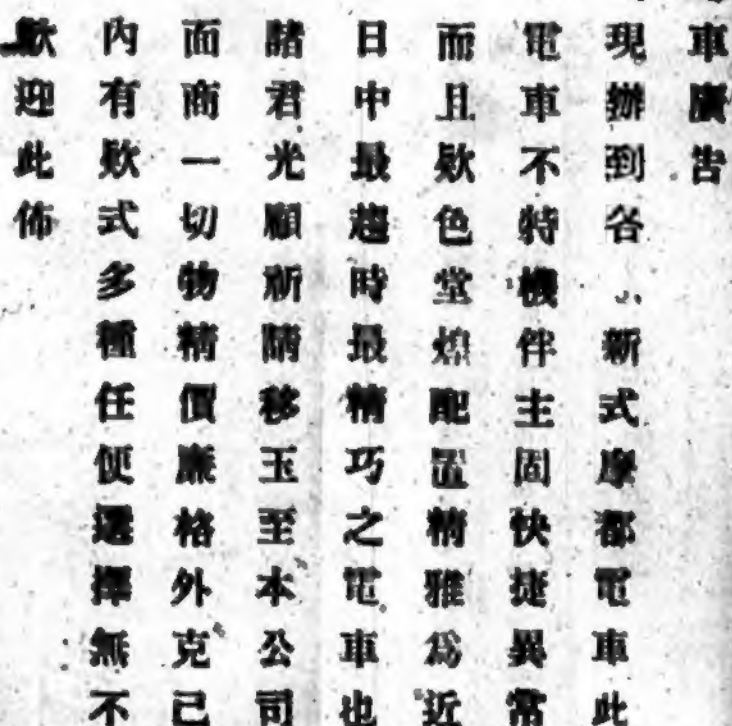 車廣告
現辦到各 新式摩都電車此
電車不特機件主固快捷異常
而且欵色堂煌配置精雅爲近
日中最趨時最精巧之電車也
諸君光顧祈請移玉至本公司
面商一切物精價廉格外克己
內有欵式多種任便選擇無不
歡迎此佈